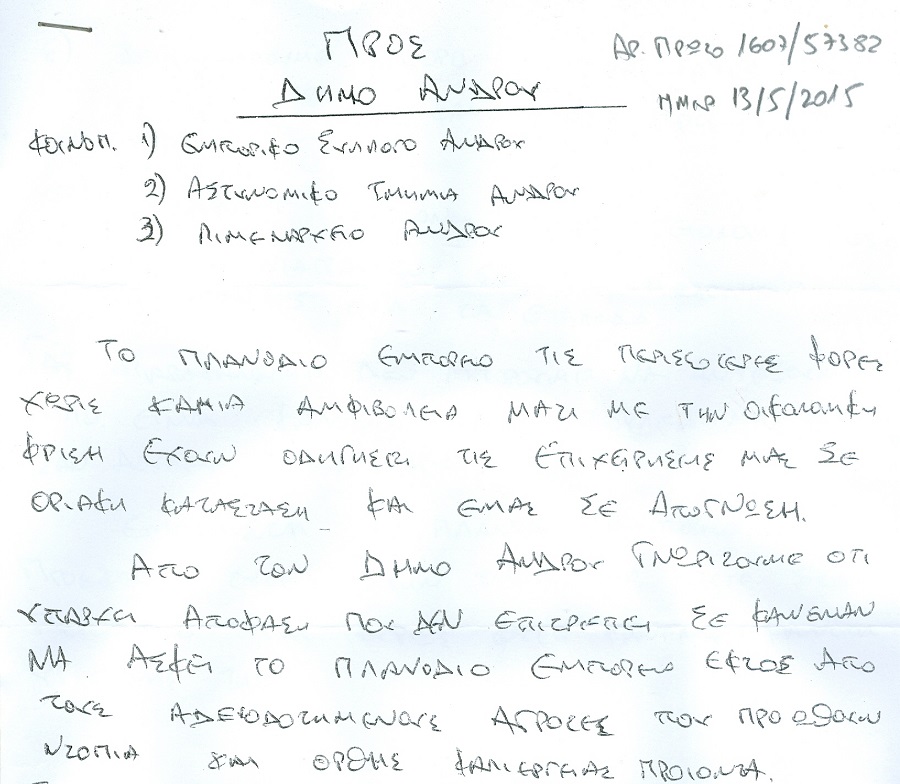 ΠΡΟΣ
ΑΡ. ΠΡΩΤΟ 1607/57382
ΔΗΜΟ ΑΝΔΡΟΥ
ΗΜΕΡ 13/5/2015
ΚΟΙΝΟΠ. 1) ΕΜΠΟΡΙΚΟ ΣΥΛΛΟΓΟ ΑΝΔΡΟΥ
2) ΑΣΤΥΝΟΜΙΚΟ ΤΜΗΜΑ ΑΝΔΡΟΥ
3) ΛΙΜΕΝΑΡΧΕΙΟ ΑΝΔΡΟΥ
ΤΟ ΠΛΑΝΟΔΙΟ ΕΜΠΟΡΕΙΟ ΤΙΣ ΠΕΡΙΣΣΟΤΕΡΕΣ ΦΟΡΕΣ
ΧΩΡΙΣ ΚΑΜΙΑ ΑΜΦΙΒΟΛΕΙΑ ΜΑΖΙ ΜΕ ΤΗΝ ΟΙΚΟΝΟΜΙΚΗ
ΚΡΙΣΗ ΕΧΟΥΝ ΟΔΗΓΗΣΕΙ ΤΙΣ ΕΠΙΧΕΙΡΗΣΕΙΣ ΜΑΣ ΣΕ
ΟΡΙΑΚΗ ΚΑΤΑΣΤΑΣΗ ΚΑΙ ΕΜΑΣ ΣΕ ΑΠΟΓΝΩΣΗ.
ΑΠΟ ΤΟΝ ΔΗΜΟ ΑΝΔΡΟΥ ΓΝΩΡΙΖΟΥΜΕ ΟΤΙ
ΥΠΑΡΧΕΙ ΑΠΟΦΑΣΗ ΠΟΥ ΔΕΝ ΕΠΙΤΡΕΠΕΙ ΣΕ ΚΑΝΕΝΑΝ
ΝΑ ΑΣΚΕΙ ΤΟ ΠΛΑΝΟΔΙΟ ΕΜΠΟΡΕΙΟ ΕΚΤΟΣ ΑΠΟ
ΤΟΥΣ ΑΔΕΙΟΔΟΤΗΜΕΝΟΥΣ ΑΓΡΟΤΕΣ ΠΟΥ ΠΡΟΩΘΟΥΝ
ΝΤΟΠΙΑ ΚΑΙ ΟΡΘΗΣ ΚΑΛΙΕΡΓΕΙΑΣ ΠΡΟΙΟΝΤΑ.